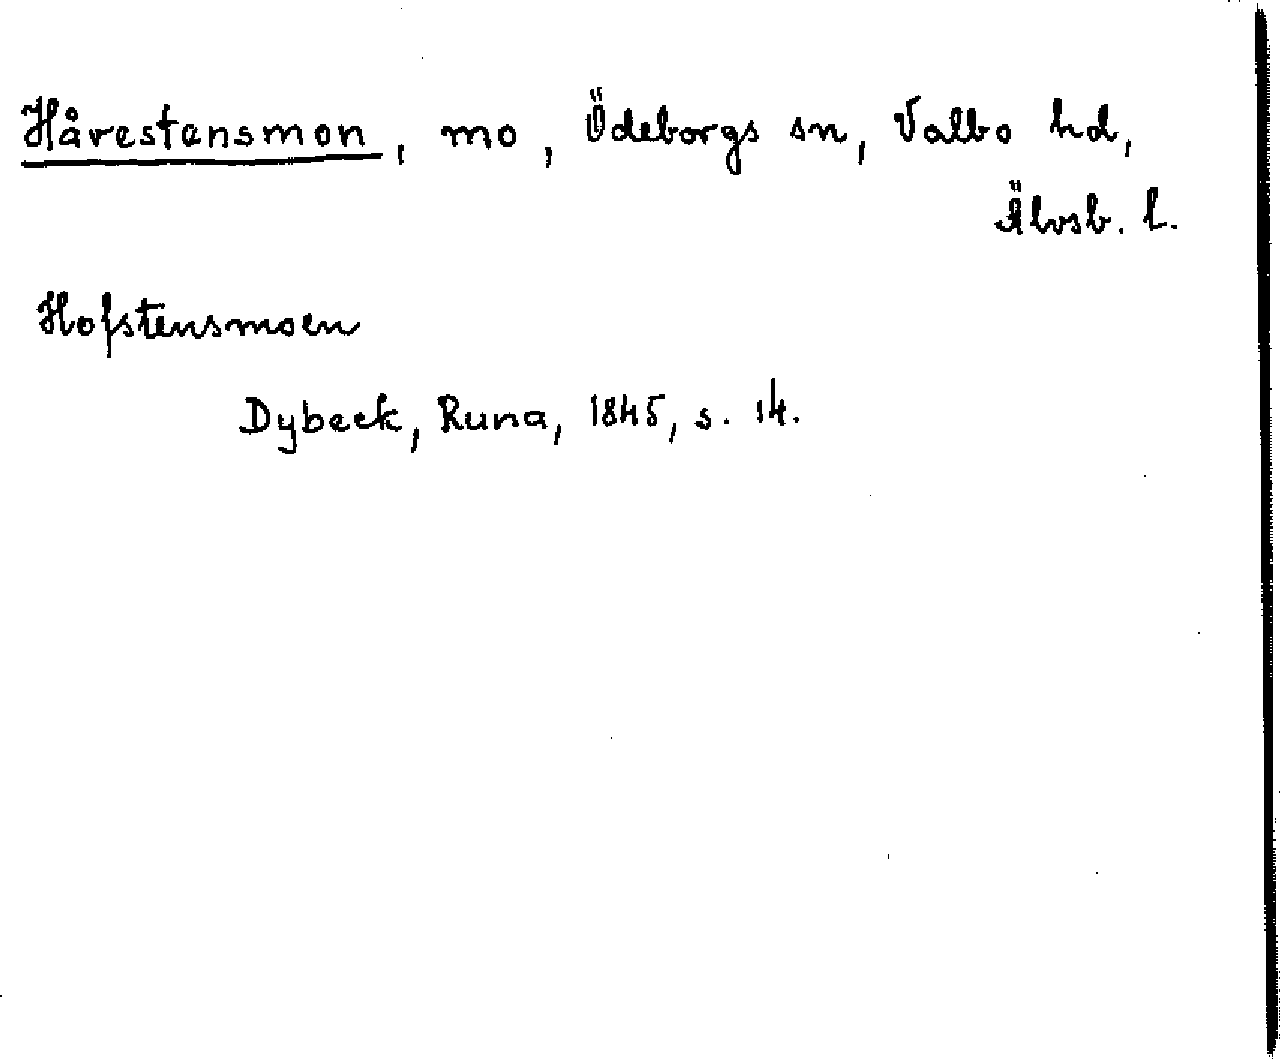 Hårestensmon, mo, Ödeborgs sn, Valbo hd,
Älvsb. l.
Hofstensmoen
Dybeck, Runa, 1845, s. 14.